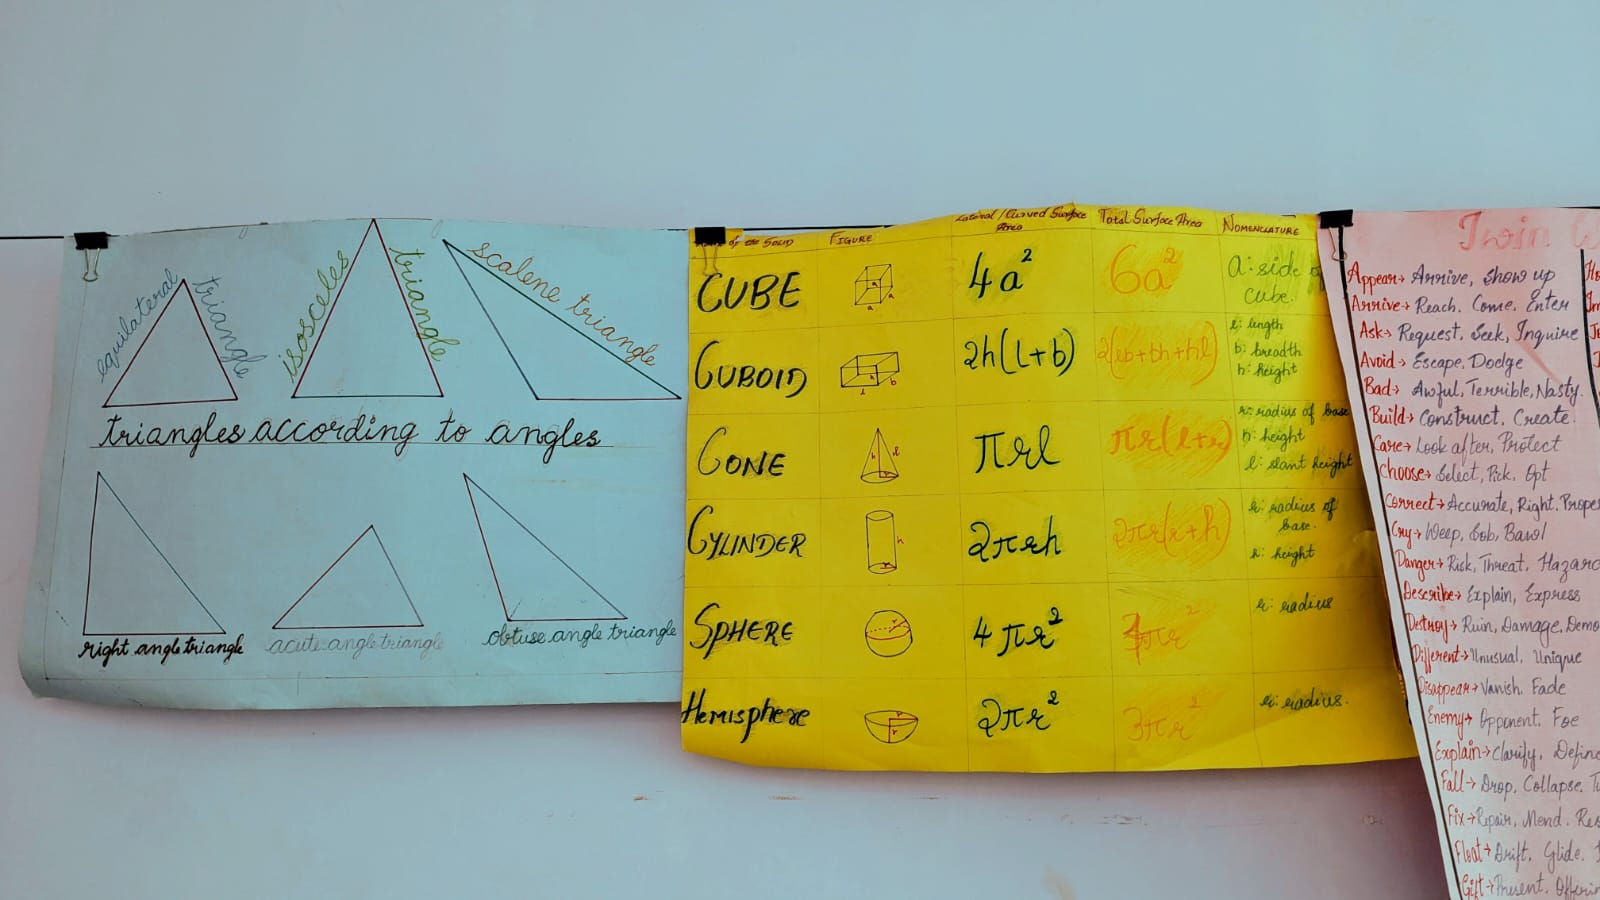 equilateral triangle
isosceles triangle
scalene triangle
triangles according to angles
right angle triangle
acute angle triangle
obtuse angle triangle
of the SOLID FIGURE Lateral/Curved Surface Area Total Surface Area NOMENCLATURE
CUBE a a a 4a² 6a² a: side of cube.
CUBOID l b h 2h(l+b) 2(lb+bh+hl) l: length
b: breadth
h: height
CONE h l r πrl πr(l+r) r: radius of base
h: height
l: slant height
CYLINDER h r 2πrh 2πr(r+h) r: radius of base.
h: height
SPHERE r 4πr² πr² r: radius
Hemisphere r r 2πr² 3πr² r: radius.
Twin
Appear→ Arrive, Show up
Arrive→ Reach, Come, Enter
Ask→ Request, Seek, Inquire
Avoid→ Escape, Dodge
Bad→ Awful, Terrible, Nasty.
Build→ Construct, Create
Care→ Look after, Protect
Choose→ Select, Pick, Opt
Correct→ Accurate, Right, Prope
Cry→ Weep, Sob, Bawl
Danger→ Risk, Threat, Hazard
Describe→ Explain, Express
Destroy→ Ruin, Damage, Demo
Different→ Unusual, Unique
Disappear→ Vanish, Fade
Enemy→ Opponent, Foe
Explain→ Clarify, Define
Fall→ Drop, Collapse, T
Fix→ Repair, Mend, Res
Float→ Drift, Glide.
Gift→ Present, Offerin